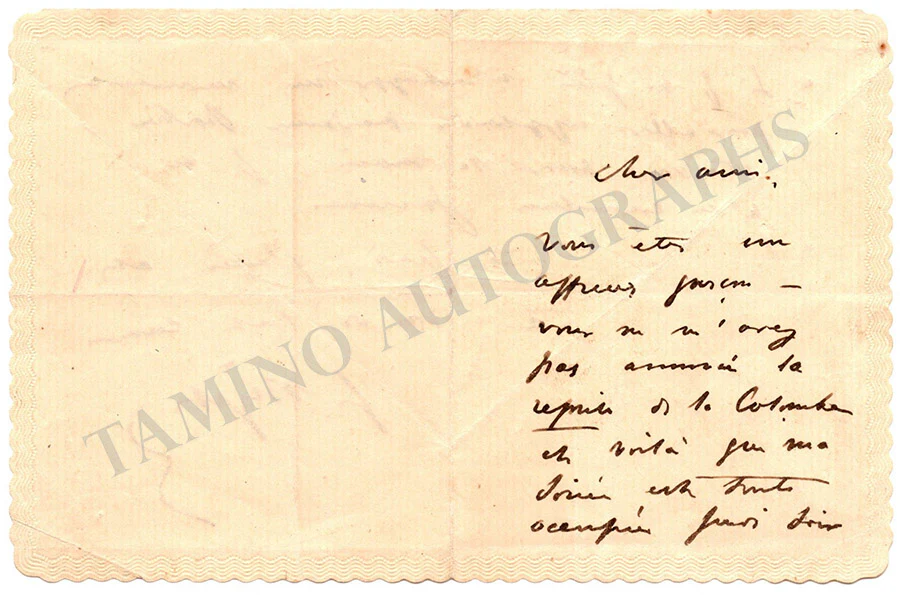 cher ami,
Vous êtes un
affreux garçon —
vous ne m'avez
pas annoncé la
reprise de la Colombe
et voilà que ma
soirée est toute
occupée jeudi soir
TAMINO AUTOGRAPHS